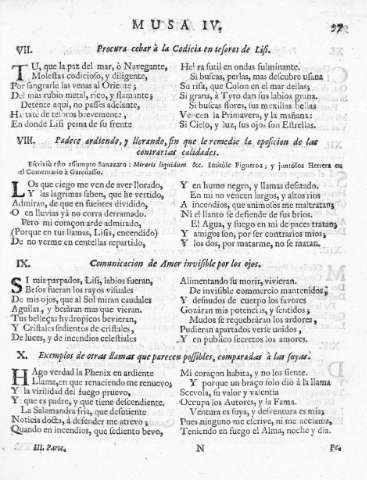 MUSA IV.
97
VII. Procura cebar à la Codicia en tesoros de Lisi.
TU, que la paz del mar, ò Navegante,
Molestas codicioso, y diligente,
Por sangrarle las venas al Oriente;
Del más rubio metal, rico, y flamante;
Detente aqui, no passes adelante,
Hartate de tesoros brevemente,
En donde Lisi peina de su frente
Hebra sutil en ondas fulminante.
Si buscas perlas, mas descubre usana
Su risa, que Colon en el mar dellas;
Si grana, à Tyro dan sus labios grana.
Si buscas flores, sus mexillas bellas
Vencen la Primavera, y la mañana:
Si Cielo, y luz, sus ojos son Estrellas.
VIII. Padece ardiendo, y llorando, sin que le remedie la oposicion de las
contrarias calidades.
Escriviò este assumpto Sanazaro: Miraris liquidum &c. Imitòle Figueroa; y juntólos Herrera en
el Comentario à Garcilasso.
LOs que ciego me ven de aver llorado,
Y las lagrimas saben, que he vertido,
Admiran, de que en fuentes dividido,
O en lluvias yà no corra derramado.
Pero mi coraçon arde admirado,
(Porque en tus llamas, Lisi, encendido)
De no verme en centellas repartido,
Y en humo negro, y llamas desatado.
En mi no vencen largos, y altos rios
A incendios, que animosos me maltratan;
Ni el llanto se defiende de sus brios.
El Agua, y fuego en mi de paces tratan;
Y amigos son, por ser contrarios mios;
Y los dos, por matarme, no se matan.
IX. Comunicacion de Amor invisible por los ojos.
SI mis parpados, Lisi, labios fueran,
Besos fueran los rayos visuales
De mis ojos, que al Sol miran caudales
Aguilas, y besáran mas que vieran.
Tus bellezas hydropicos bevieran,
Y Cristales sedientos de cristales,
De luces, y de incendios celestiales
Alimentando su morir, vivieran.
De invisible commercio mantenidos,
Y desnudos de cuerpo los favores
Gozàran mis potencias, y sentidos;
Mudos se requebràran los ardores,
Pudieran apartados verse unidos,
Y en publico secretos los amores.
X. Exemplos de otras llamas que parecen possibles, comparadas à las suyas.
HAgo verdad la Phenix en ardiente
Llama, en que renaciendo me renuevo;
Y la virilidad del fuego pruevo,
Y que es padre, y que tiene descendiente.
La Salamandra fria, que desmiente
Noticia docta, à defender me atrevo;
Quando en incendios, que sediento bevo,
Mi coraçon habita, y no los siente.
Y porque un braço solo diò à la llama
Scevola, su valor y valentia
Occupa los Autores, y la Fama.
Ventura es suya, y desventura es mia;
Pues ninguno me escrive, ni me aclama,
Teniendo en fuego el Alma, noche y dia.
III. Parte.
N